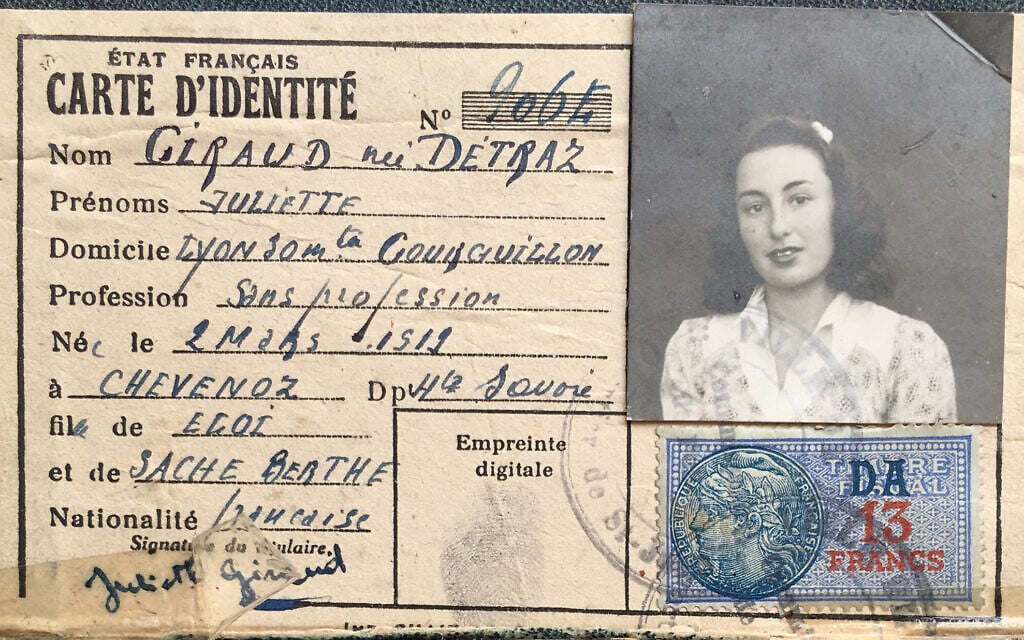 ÉTAT FRANÇAIS
CARTE D'IDENTITÉ
Nº 9064
Nom GIRAUD née DÉTRAZ
Prénoms JULIETTE
Domicile LYON 30 mtée GOURGUILLON
Profession Sans profession
Née le 2 Mars 1919
à CHEVENOZ Dpt Hte Savoie
fille de ELOI
et de SACHE BERTHE
Nationalité française
Signature du titulaire,
Juliette Giraud
Empreinte
digitale
RÉPUBLIQUE FRANÇAISE
TIMBRE
FISCAL
DA
13
FRANCS